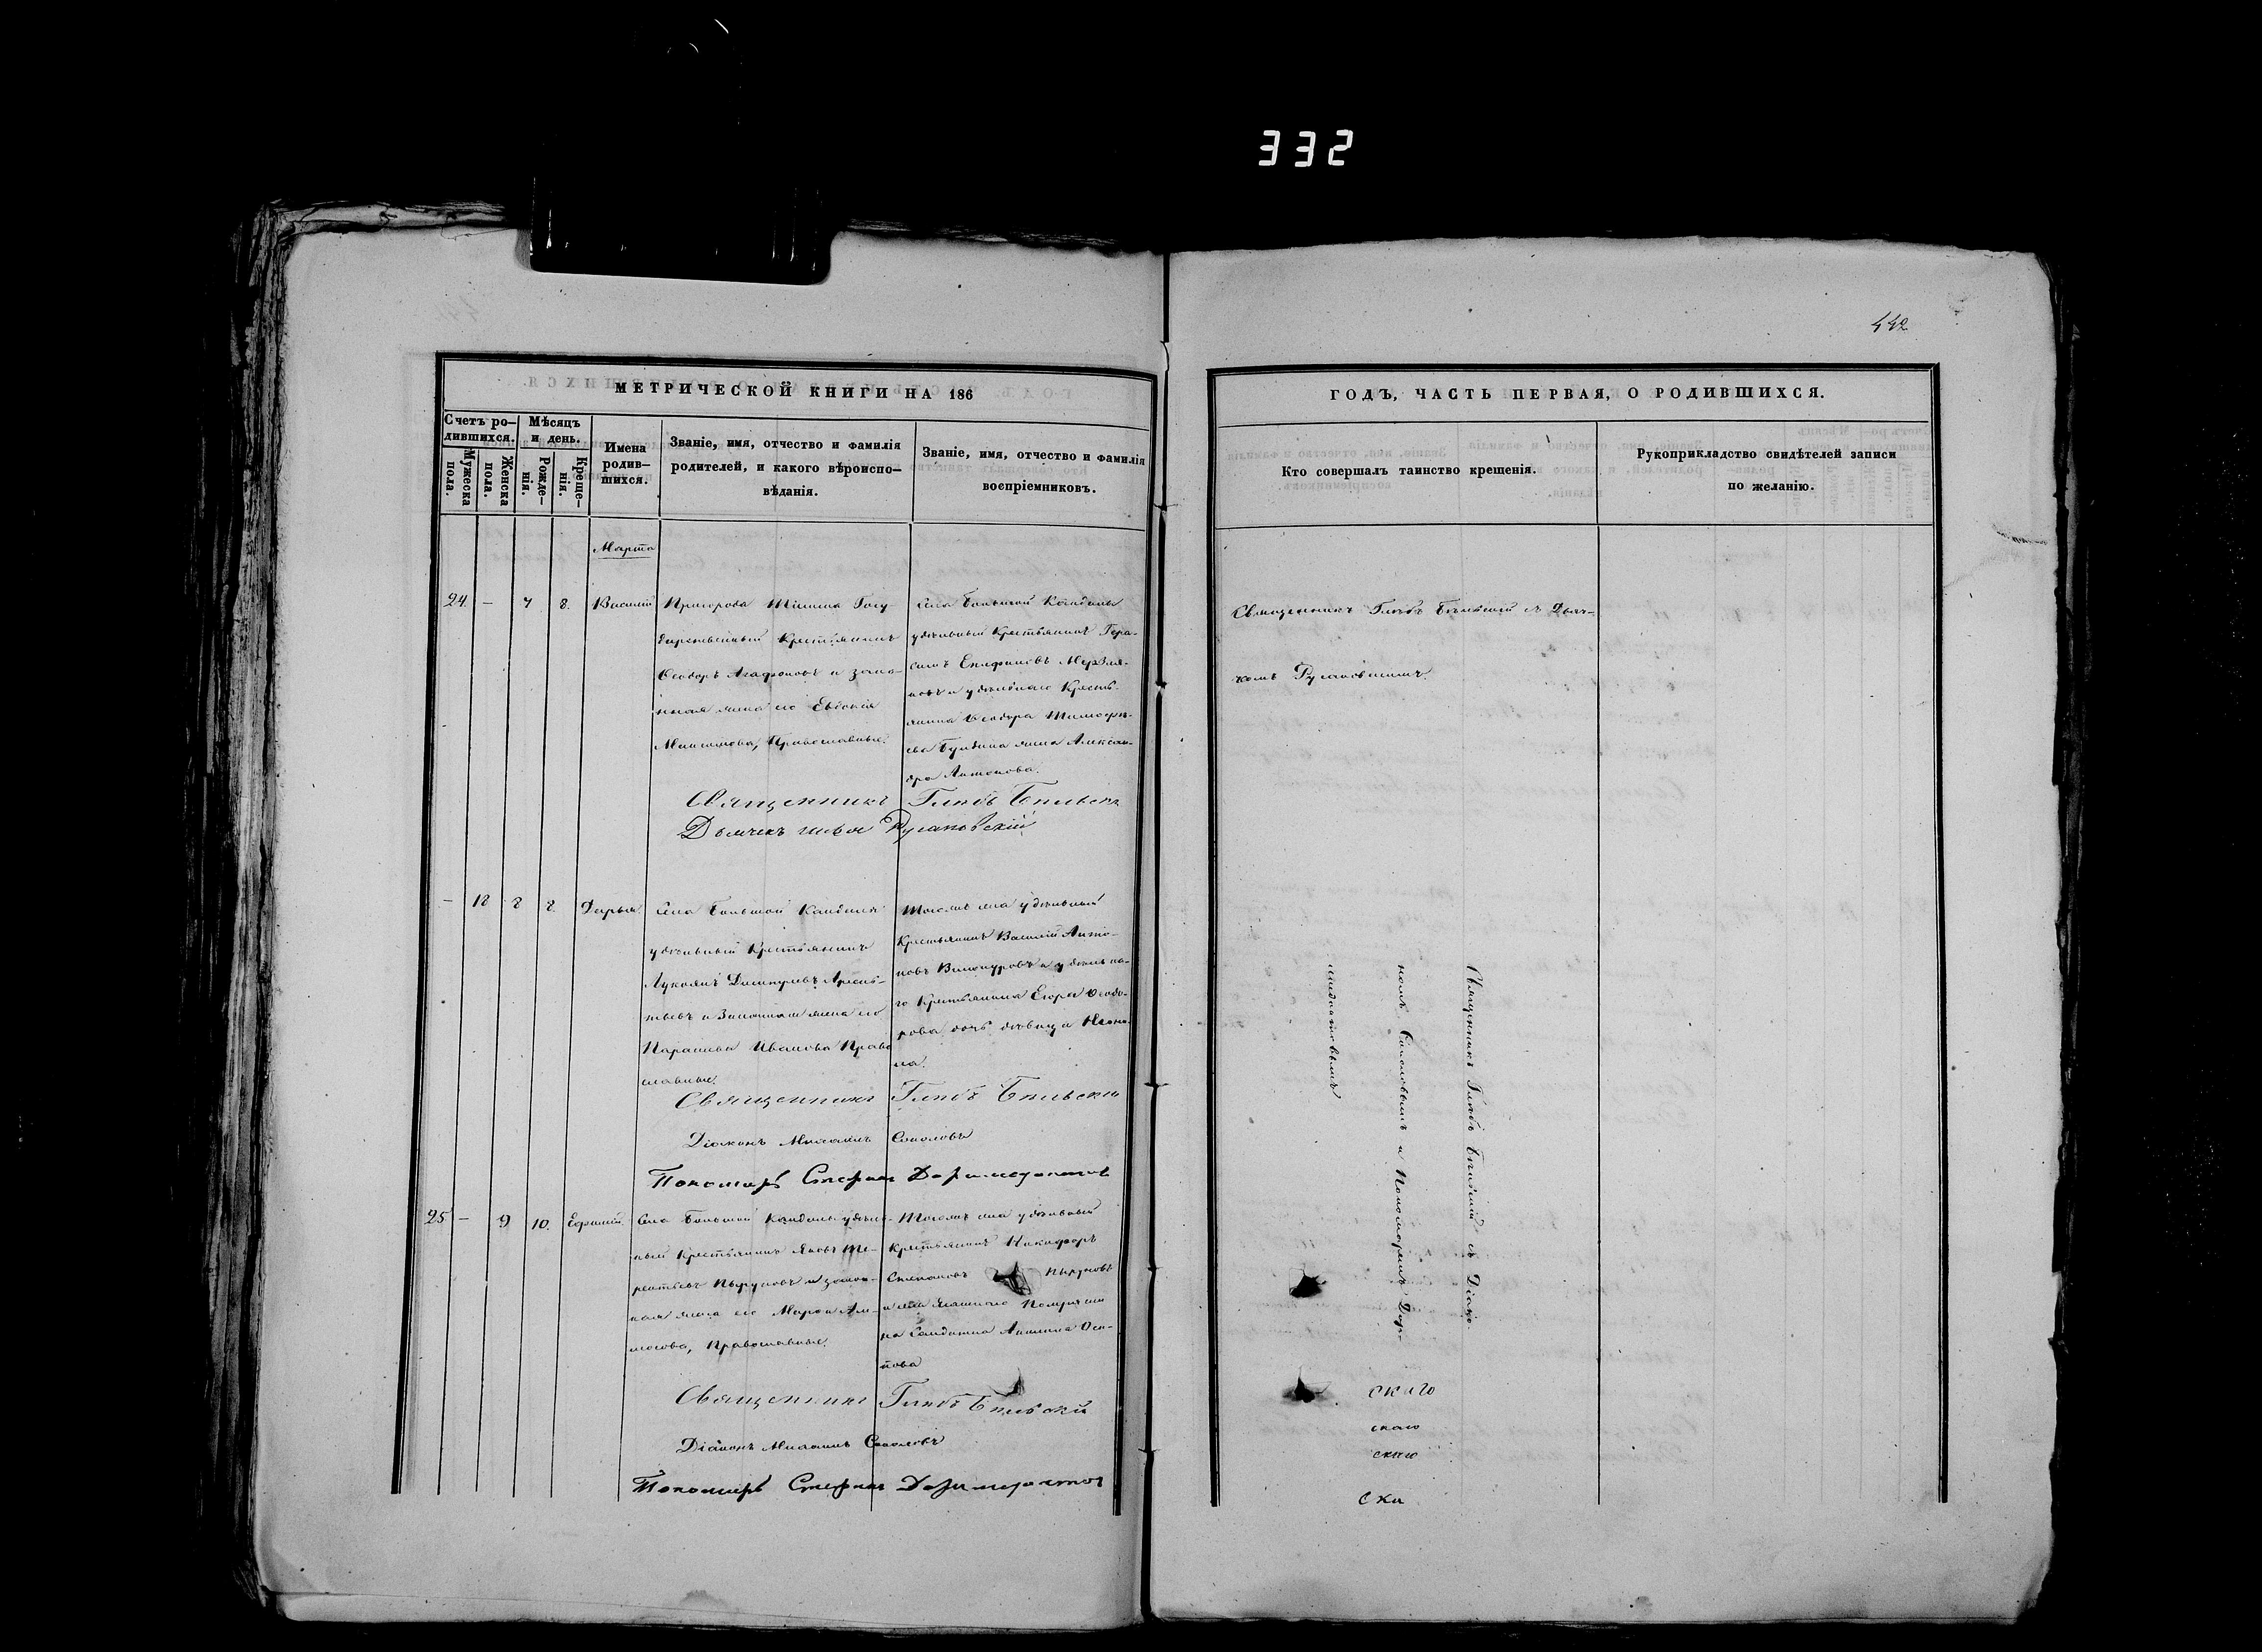 332
442
МЕТРИЧЕСКОЙ КНИГИ НА 186
ГОДЪ, ЧАСТЬ ПЕРВАЯ, О РОДИВШИХСЯ.
Счетъ ро-
дившихся.
Мужеска
пола.
Женска
пола.
Мѣсяцъ
и день.
Рожде-
нія.
Креще-
нія.
Имена
родив-
шихся.
Званіе, имя, отчество и фамилія
родителей, и какого вѣроиспо-
вѣданія.
Званіе, имя, отчество и фамилія
воспріемниковъ.
Кто совершалъ таинство крещенія.
Рукоприкладство свидѣтелей записи
по желанію.
Марта
24. – 7 8. Василій
Пригорода Тіинска Госу
дарственный Крестьянинъ
Ѳеодоръ Агафоновъ и зако-
нная жена его Евдокія
Максимова, Православные.
Села Большой Кандалы
удѣльный Крестьянинъ Гера-
симъ Епифановъ Мерзля-
ковъ и удѣльнаго Кресть-
янина Ѳеодора Тимофе-
ева жена Алексан-
дра Антонова.
Священникъ Глѣбъ Бѣльскій съ Дьяч-
комъ Русановскимъ.
Священникъ Глѣбъ Бѣльскі
Дьячекъ Илья Русановскій
– 18 8 8. Дарья.
Села Большой Кандалы
удѣльный Крестьянинъ
Лукоянъ Арсень-
тьевъ и Законная жена его
Параскева Иванова Право
славные.
Тогожъ села удѣльный
Крестьянинъ Василій Анто-
новъ Винокуровъ и удѣльна-
го Крестьянина Егора Ѳеодо-
рова дочь дѣвица
Священникъ Глѣбъ Бѣльскій съ Діако-
номъ Соколовымъ и Пономаремъ Дори-
мидонтовымъ
Священникъ Глѣбъ Бѣльскій
Діаконъ Михаилъ Соколовъ
Пономарь Стефанъ Доримедонтовъ
25 – 9 10. Ефимій.
Села Большой Кандалы удѣль-
ный Крестьянинъ Яковъ Те-
рентьевъ Пырковъ и закон-
ная жена его Марѳа Ам-
мосова, Православные.
Тогожъ села удѣльный
Крестьянинъ Никифоръ
Степановъ Пырковъ
и села
на Солдатка Акилина Оси-
пова
Священникъ Глѣбъ Бѣльскій
Діаконъ Михаилъ Соколовъ
Пономарь Стефанъ Доримедонтовъ
скаго
скаго
скаго
ска